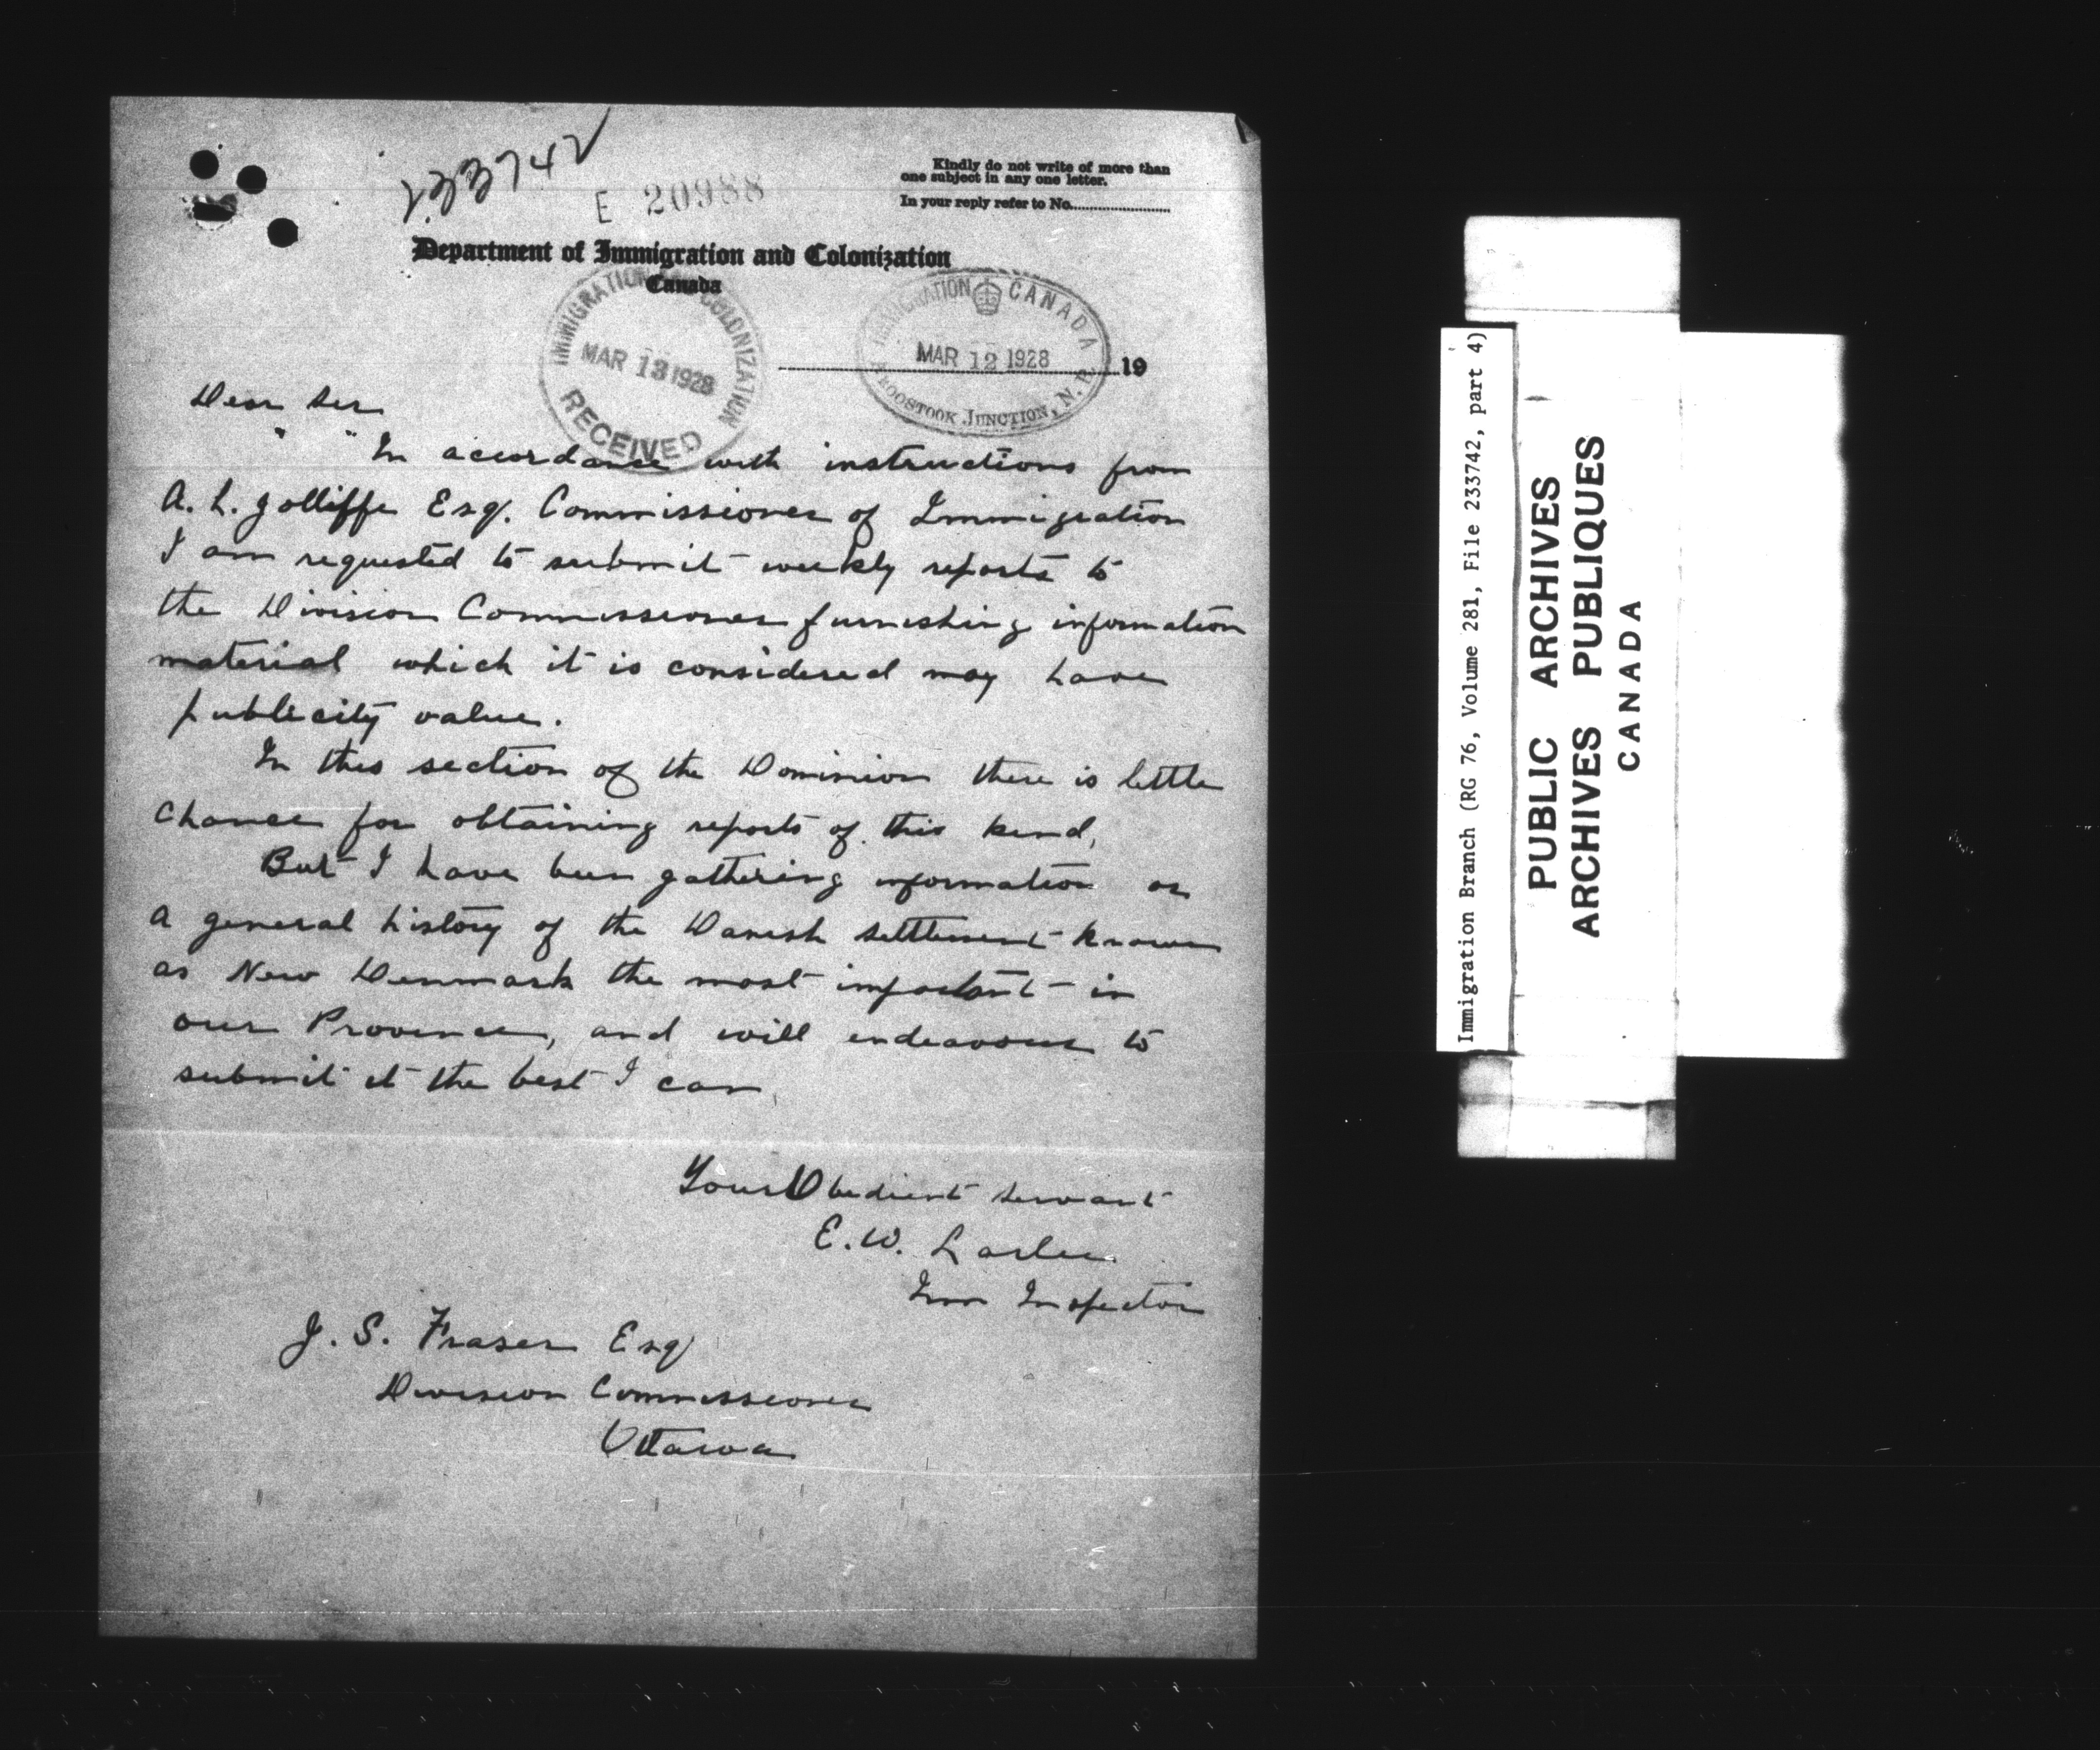 233742
E 20988
Kindly do not write of more than
one subject in any one letter.
In your reply refer to No.
Department of Immigration and Colonization
Canada
IMMIGRATION COLONIZATION
MAR 13 1928
RECEIVED
IMMIGRATION CANADA
MAR 12 1928
AROOSTOOK JUNCTION, N. B.
19
Dear Sir
" " In accordance with instructions from
A. L. Jolliffe Esq. Commissioner of Immigration
I am requested to submit weekly reports to
the Division Commissioner furnishing information
material which it is considered may have
publicity value.
In this section of the Dominion there is little
chance for obtaining reports of this kind,
But I have been gathering information on
a general history of the Danish settlement known
as New Denmark the most important in
our Province, and will endeavour to
submit it the best I can
Your Obedient servant
E. W. Larlee
Imm Inspector
J. S. Fraser Esq
Division Commissioner
Ottawa
Immigration Branch (RG 76, Volume 281, File 233742, part 4)
PUBLIC ARCHIVES
ARCHIVES PUBLIQUES
CANADA